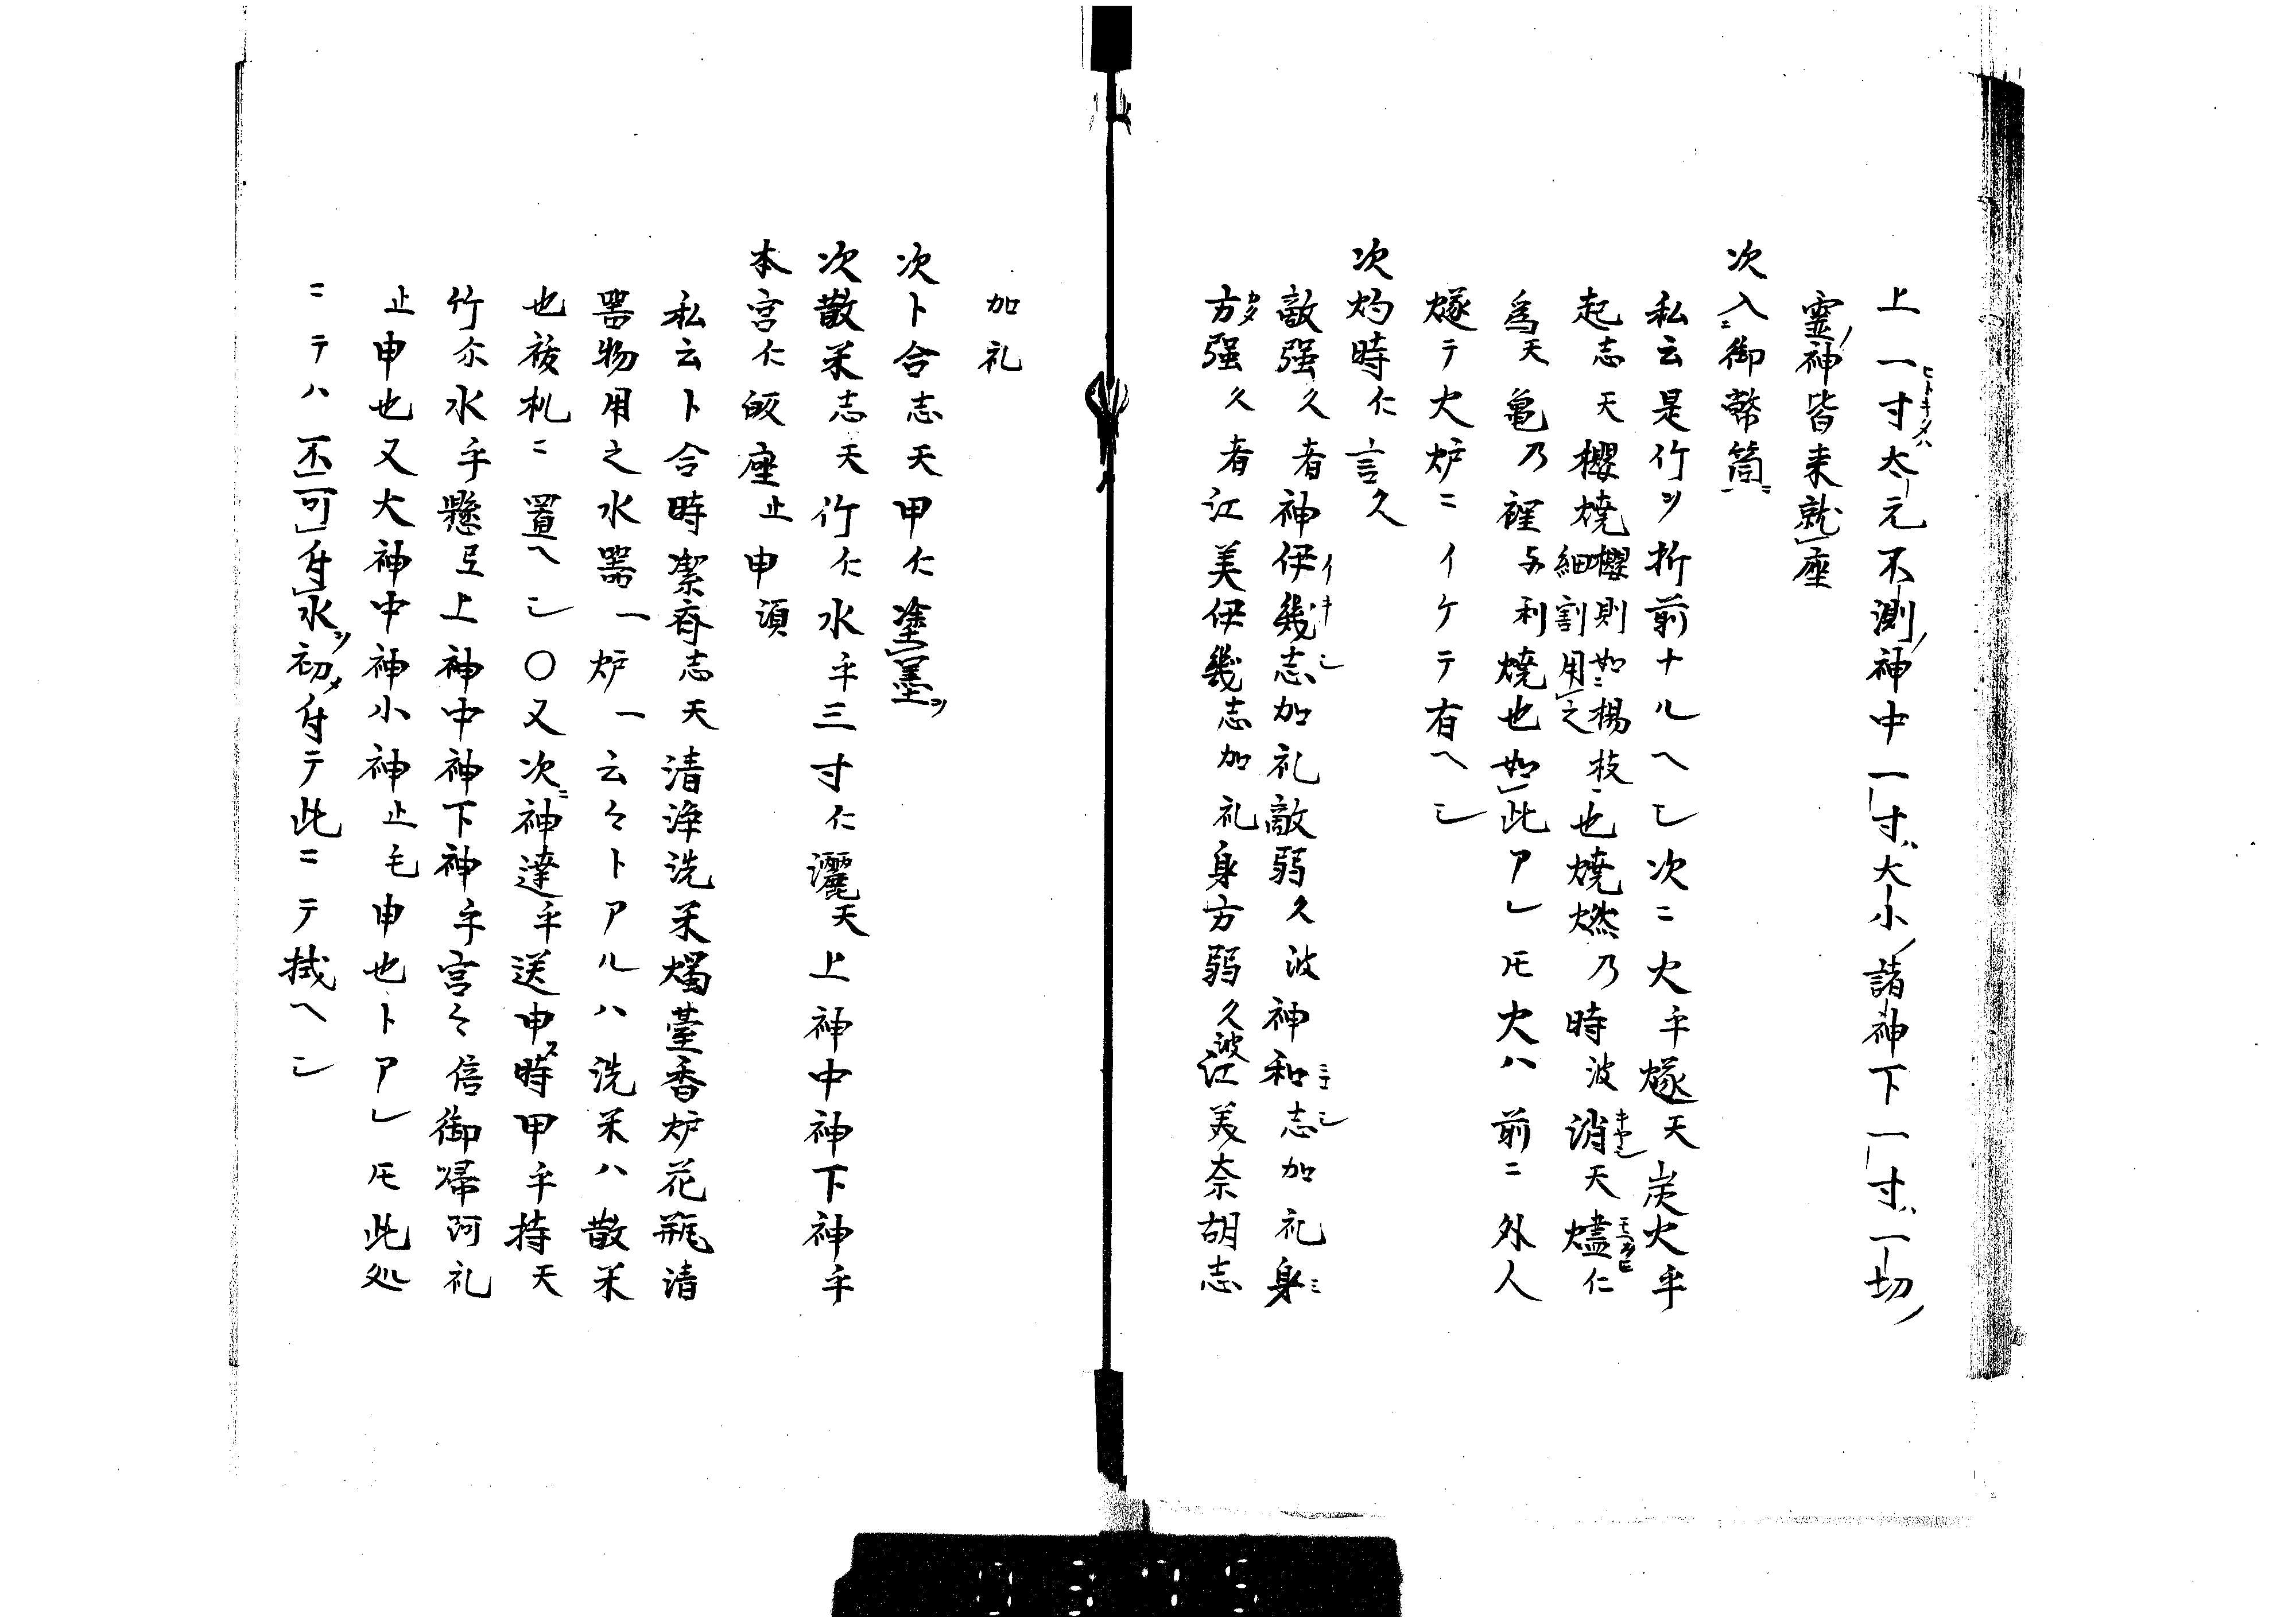 上一寸太元不測神中一寸大小諸神下一寸一切
霊神皆来就座
次入御幣筒
私云是竹ヲ折前ナルヘシ次ニ火乎燧天炭火乎
起志天櫻焼櫻則如楊枝也細割用之焼燃乃時波消天燼仁
為天亀乃裡与利焼也如此アレ𪜈火ハ前ニ外人
燧テ火炉ニイケテ有ヘシ
次灼時仁言久
敵強久者神伊幾志加礼敵弱久波神和志加礼身
方强久者江美伊幾志加礼身方弱久波江美奈胡志
加礼
次卜合志天甲仁塗墨ヲ
次散米志天竹仁水乎三寸仁灑天上神中神下神乎
本宮仁皈座止申須
私云卜合時潔斎志天清浄洗米燭臺香炉花瓶清
器物用之水器一炉一云々トアルハ洗米ハ散米
也祓札ニ置ヘシ〇又次神達乎送申時甲乎持天
竹尓水乎懸弖上神中神下神乎宮々信御帰阿礼
止申也又大神中神小神止毛申也トアレ𪜈此処
ニテハ不可付水ヲ初付テ此ニテ拭ヘシ